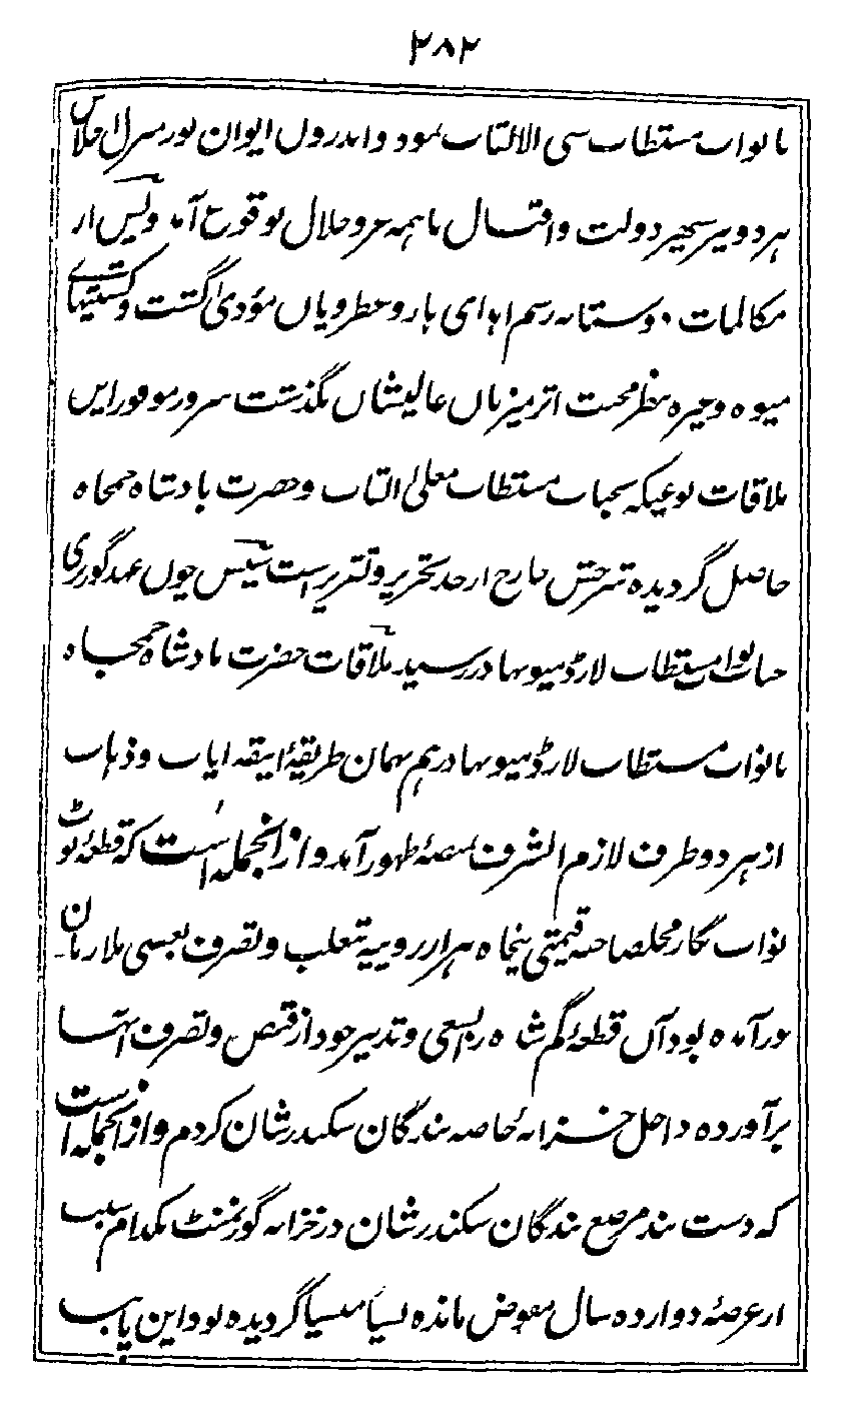 ۲۸۲
با نواب مستطاب سی الالقاب نمود و اندرون ایوان نور سرل اجلاس
هر دو سپهر دولت و اقبال با همه عز و جلال بوقوع آمد و پس از
مکالمات دوستانه رسم اهدای هار و عطر و پان مؤدی گشت و کشتیهای
میوه و غیره بنظر محبت اثر میزبان عالیشان بگذشت سرور موفور این
ملاقات نوعیکه بجناب مستطاب معلی القاب و حضرت بادشاه جمجاه
حاصل گردیده شرحش خارج از حد تحریر و تقریر است سپس چون عهد گورنری
جناب نواب مستطاب لارڈ میو بهادر رسید ملاقات حضرت بادشاه جمجاه
با نواب مستطاب لارڈ میو بهادر هم بهمان طریقهٔ انیقه ایاب و ذهاب
از هر دو طرف لازم الشرف بمنصهٔ ظهور آمد و از انجمله است که قطعهٔ نوٹ
نواب نگار محلصاحبه قیمتی پنجاه هزار روپیه بتغلب و تصرف بعضی ملازمان
درآمده بود آن قطعهٔ گم شده را بسعی و تدبیر خود از قبض و تصرف آنها
برآورده داخل خزانهٔ خاصه بندگان سکندر شان کردم و از انجمله است
که دست بند مرصع بندگان سکندر شان در خزانه گورنمنٹ بکدام سبب
از عرصهٔ دوازده سال مفوض مانده نسیاً منسیا گردیده بود این پا